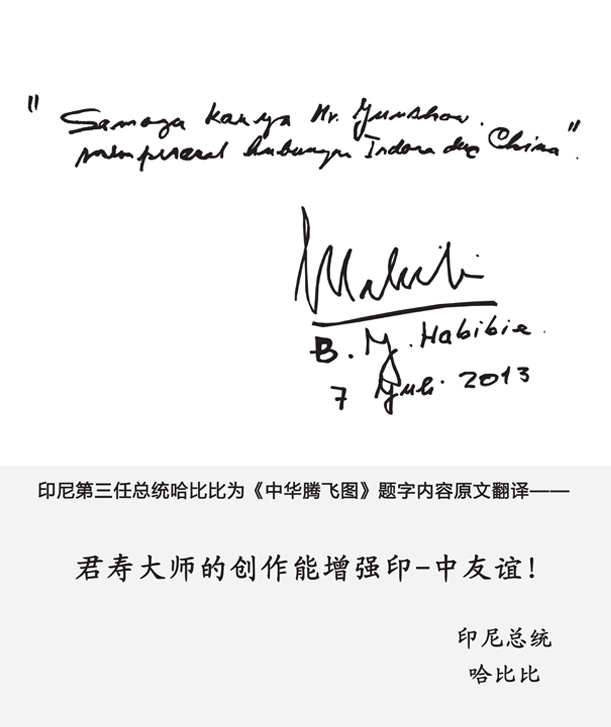 "Semoga karya Mr. Junshou.
mempererat hubungan Indon dng China".
B. J. Habibie.
7 Juli 2013
印尼第三任总统哈比比为《中华腾飞图》题字内容原文翻译——
君寿大师的创作能增强印-中友谊！
印尼总统
哈比比